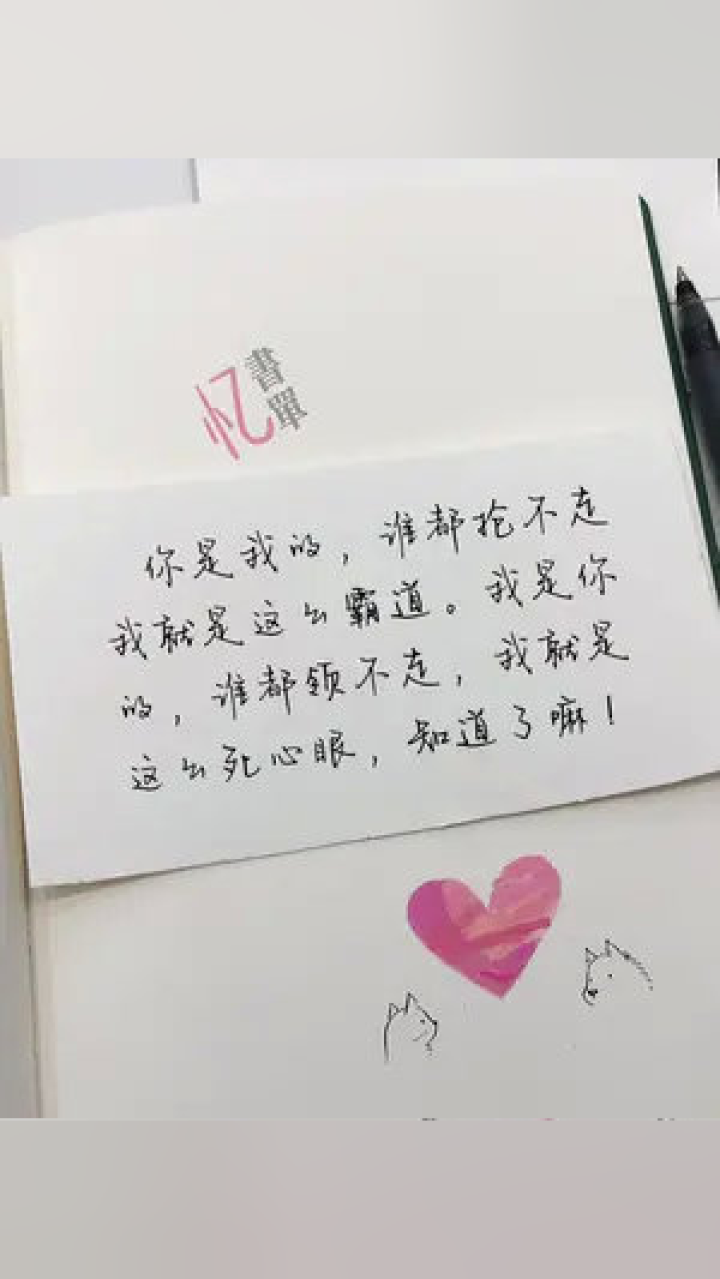 忆書單
你是我的，谁都抢不走
我就是这么霸道。我是你
的，谁都领不走，我就是
这么死心眼，知道了嘛！